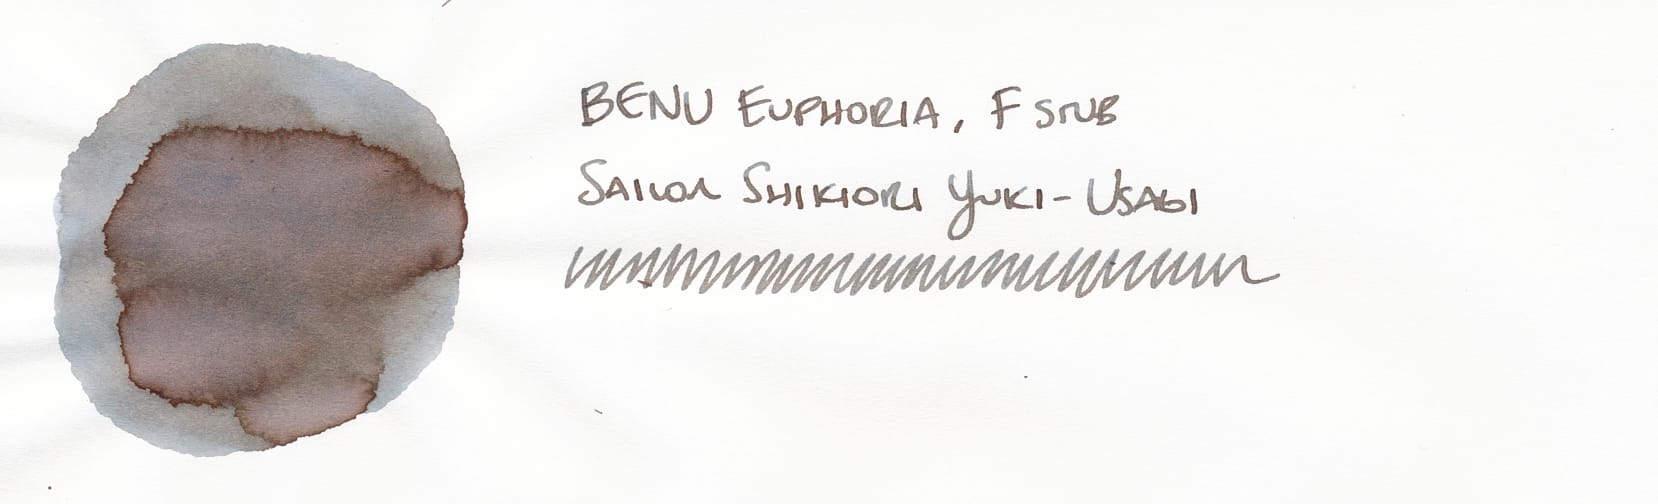 BENU EUPHORIA, F STUB
SAILOR SHIKIORI YUKI-USAGI